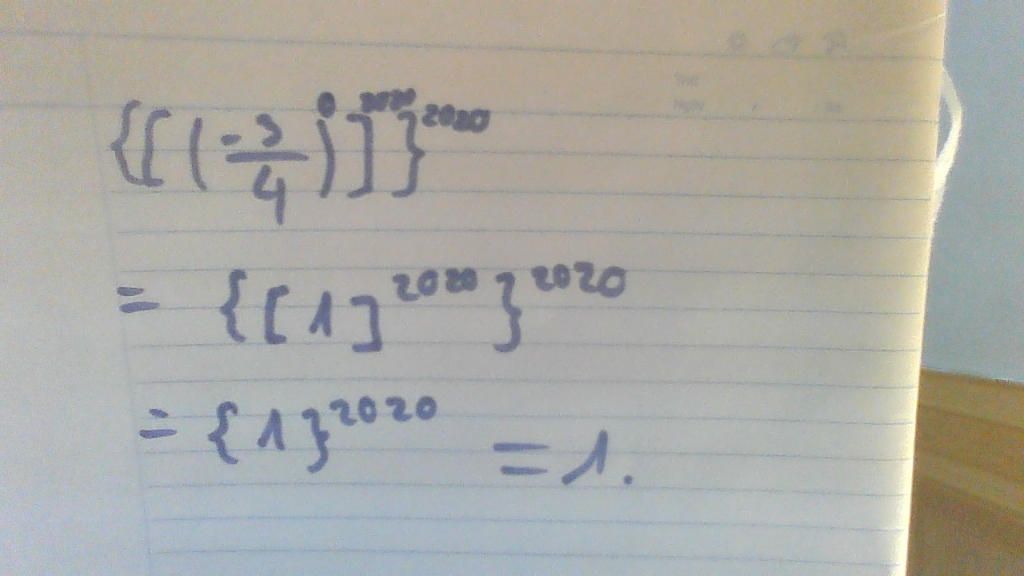 {[(-3/4)^0]^2020}^2020
= {[1]^2020}^2020
= {1}^2020 = 1.